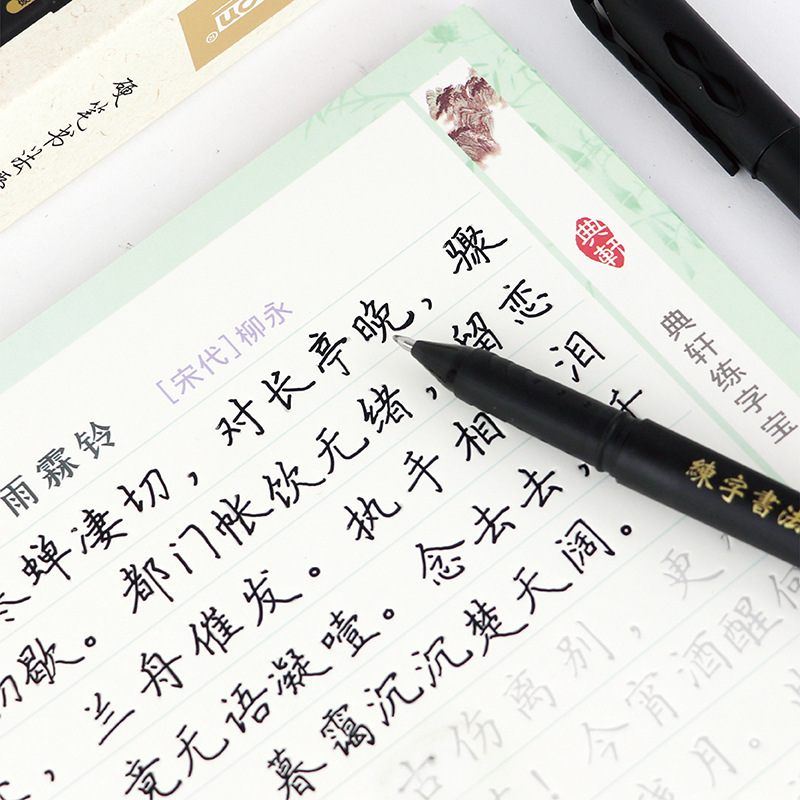 硬笔书法
典軒
典轩练字宝
[宋代]柳永
雨霖铃
蝉凄切，对长亭晚，骤
初歇。都门帐饮无绪，留恋
，兰舟催发。执手相泪
竟无语凝噎。念去去，千
暮霭沉沉楚天阔。
古伤离别，更
！今宵酒醒何
月。
練字書法